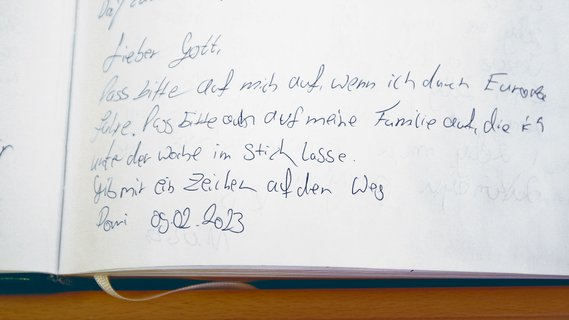 Lieber Gott,
Pass bitte auf mich auf, wenn ich durch Europa
fahre. Pass bitte auch auf meine Familie auf, die ich
unter der Woche im Stich lasse.
Gib mir ein Zeichen auf den Weg
Domi 09.02.2023